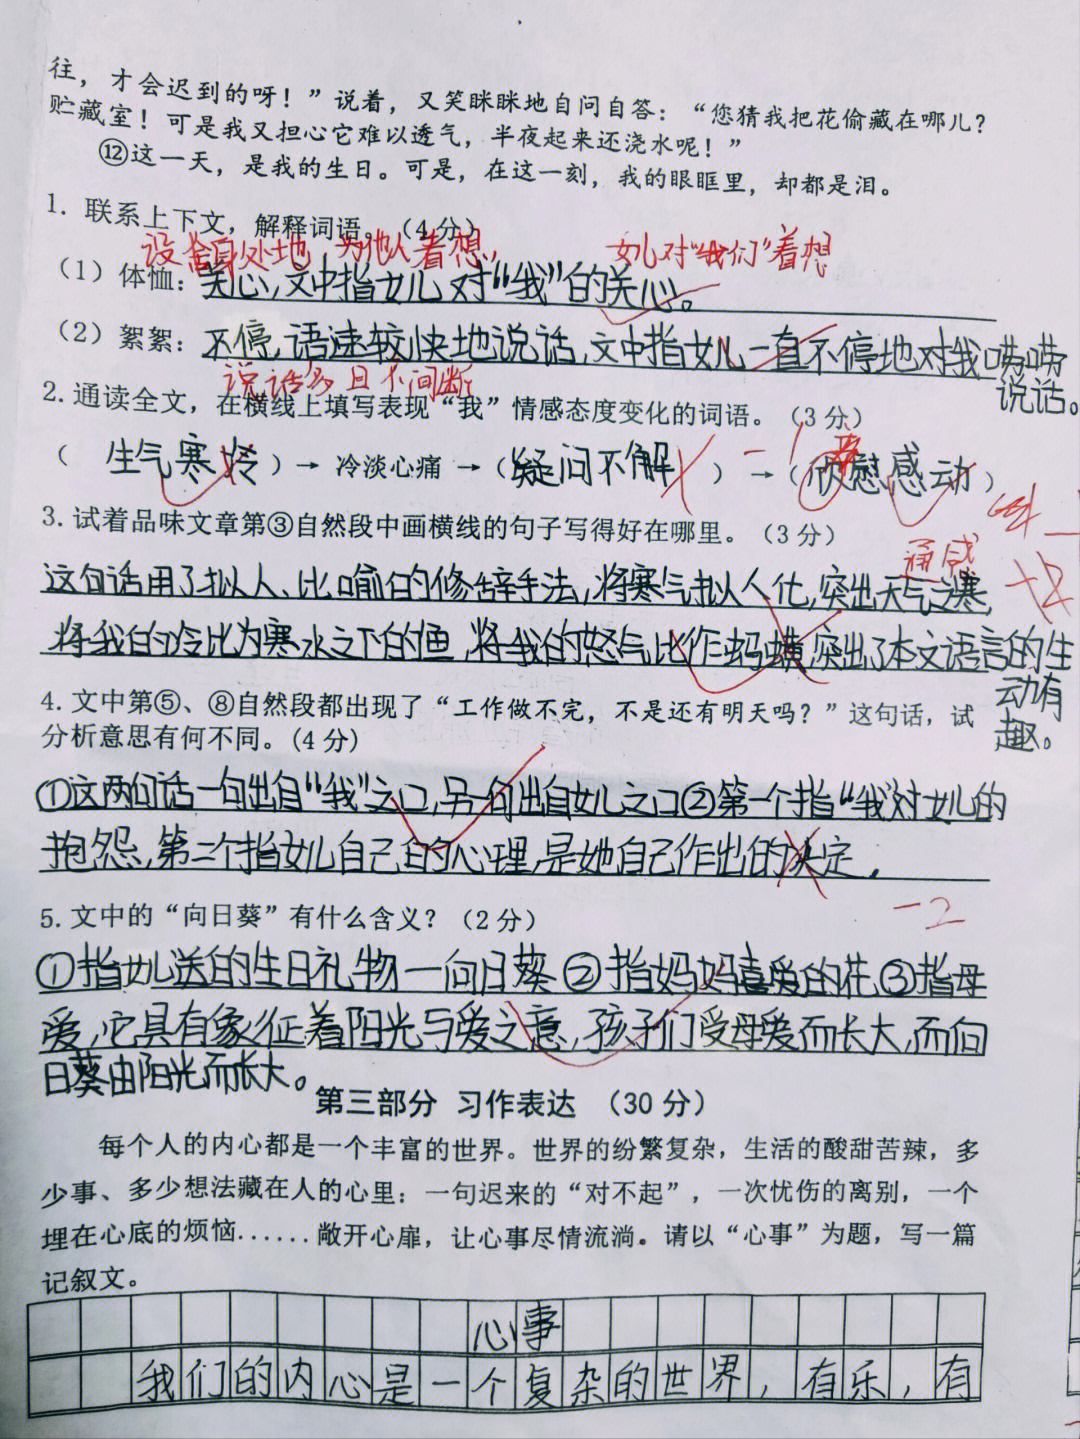 往，才会迟到的呀！”说着，又笑眯眯地自问自答：“您猜我把花偷藏在哪儿？
贮藏室！可是我又担心它难以透气，半夜起来还浇水呢！”
⑫这一天，是我的生日。可是，在这一刻，我的眼眶里，却都是泪。
1. 联系上下文，解释词语。（4分）
设身处地 为他人着想， 女儿对“我们”着想
（1）体恤：关心，文中指女儿对“我”的关心。
（2）絮絮：不停，语速较快地说话，文中指女儿一直不停地对我唠唠
说话。
说话多且不间断
2. 通读全文，在横线上填写表现“我”情感态度变化的词语。（3分）
（ 生气寒冷 ）→ 冷淡心痛 →（疑问不解 ） -1 →（欣慰感动）
3. 试着品味文章第③自然段中画横线的句子写得好在哪里。（3分）
通感
这句话用了拟人、比喻的修辞手法，将寒气拟人化，突出天气之寒，
将我的冷比为寒水之下的鱼，将我的怒气比作蚂蟥，突出了本文语言的生
动有
趣。
4. 文中第⑤、⑧自然段都出现了“工作做不完，不是还有明天吗？”这句话，试
分析意思有何不同。(4分)
①这两句话一句出自“我”之口，另一句出自女儿之口②第一个指“我”对女儿的
抱怨，第二个指女儿自己的心理，是她自己作出的决定。
-2
5. 文中的“向日葵”有什么含义？（2分）
①指女儿送的生日礼物一向日葵②指妈妈喜爱的花③指母
爱，它具有象征着阳光与爱之意，孩子们受母爱而长大，而向
日葵由阳光而长大。
第三部分 习作表达 （30分）
每个人的内心都是一个丰富的世界。世界的纷繁复杂，生活的酸甜苦辣，多
少事、多少想法藏在人的心里：一句迟来的“对不起”，一次忧伤的离别，一个
埋在心底的烦恼......敞开心扉，让心事尽情流淌。请以“心事”为题，写一篇
记叙文。
心事
我们的内心是一个复杂的世界，有乐，有